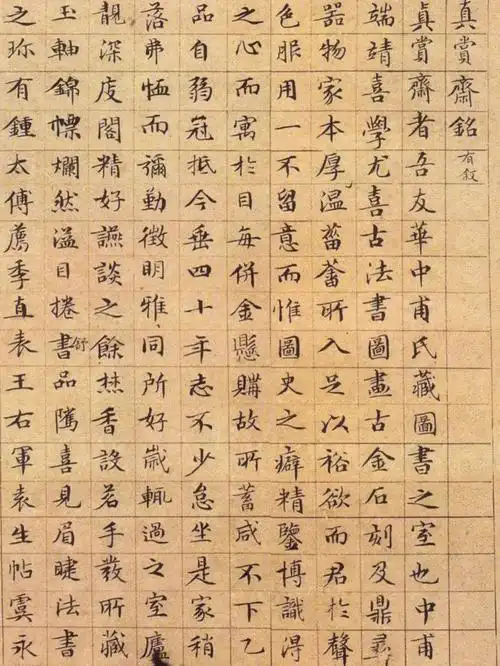 真賞齋銘 有叙
眞賞齋者吾友華中甫氏藏圖書之室也中甫
端靖喜學尤喜古法書圖畫古金石刻及鼎彝
器物家本厚溫菑畬所入足以裕欲而君於聲
色服用一不留意而惟圖史之癖精鑒博識得
之心而寓於目每併金懸購故所蓄咸不下乙
品自弱冠抵今垂四十年志不少怠坐是家稍
落弗恤而彌勤徵明雅同所好歲輒過之室廬
靚深庋閣精好讌談之餘焚香設茗手發所藏
玉軸錦幖爛然溢目捲書舒品隲喜見眉睫法書
之珎有鍾太傅薦季直表王右軍袁生帖虞永